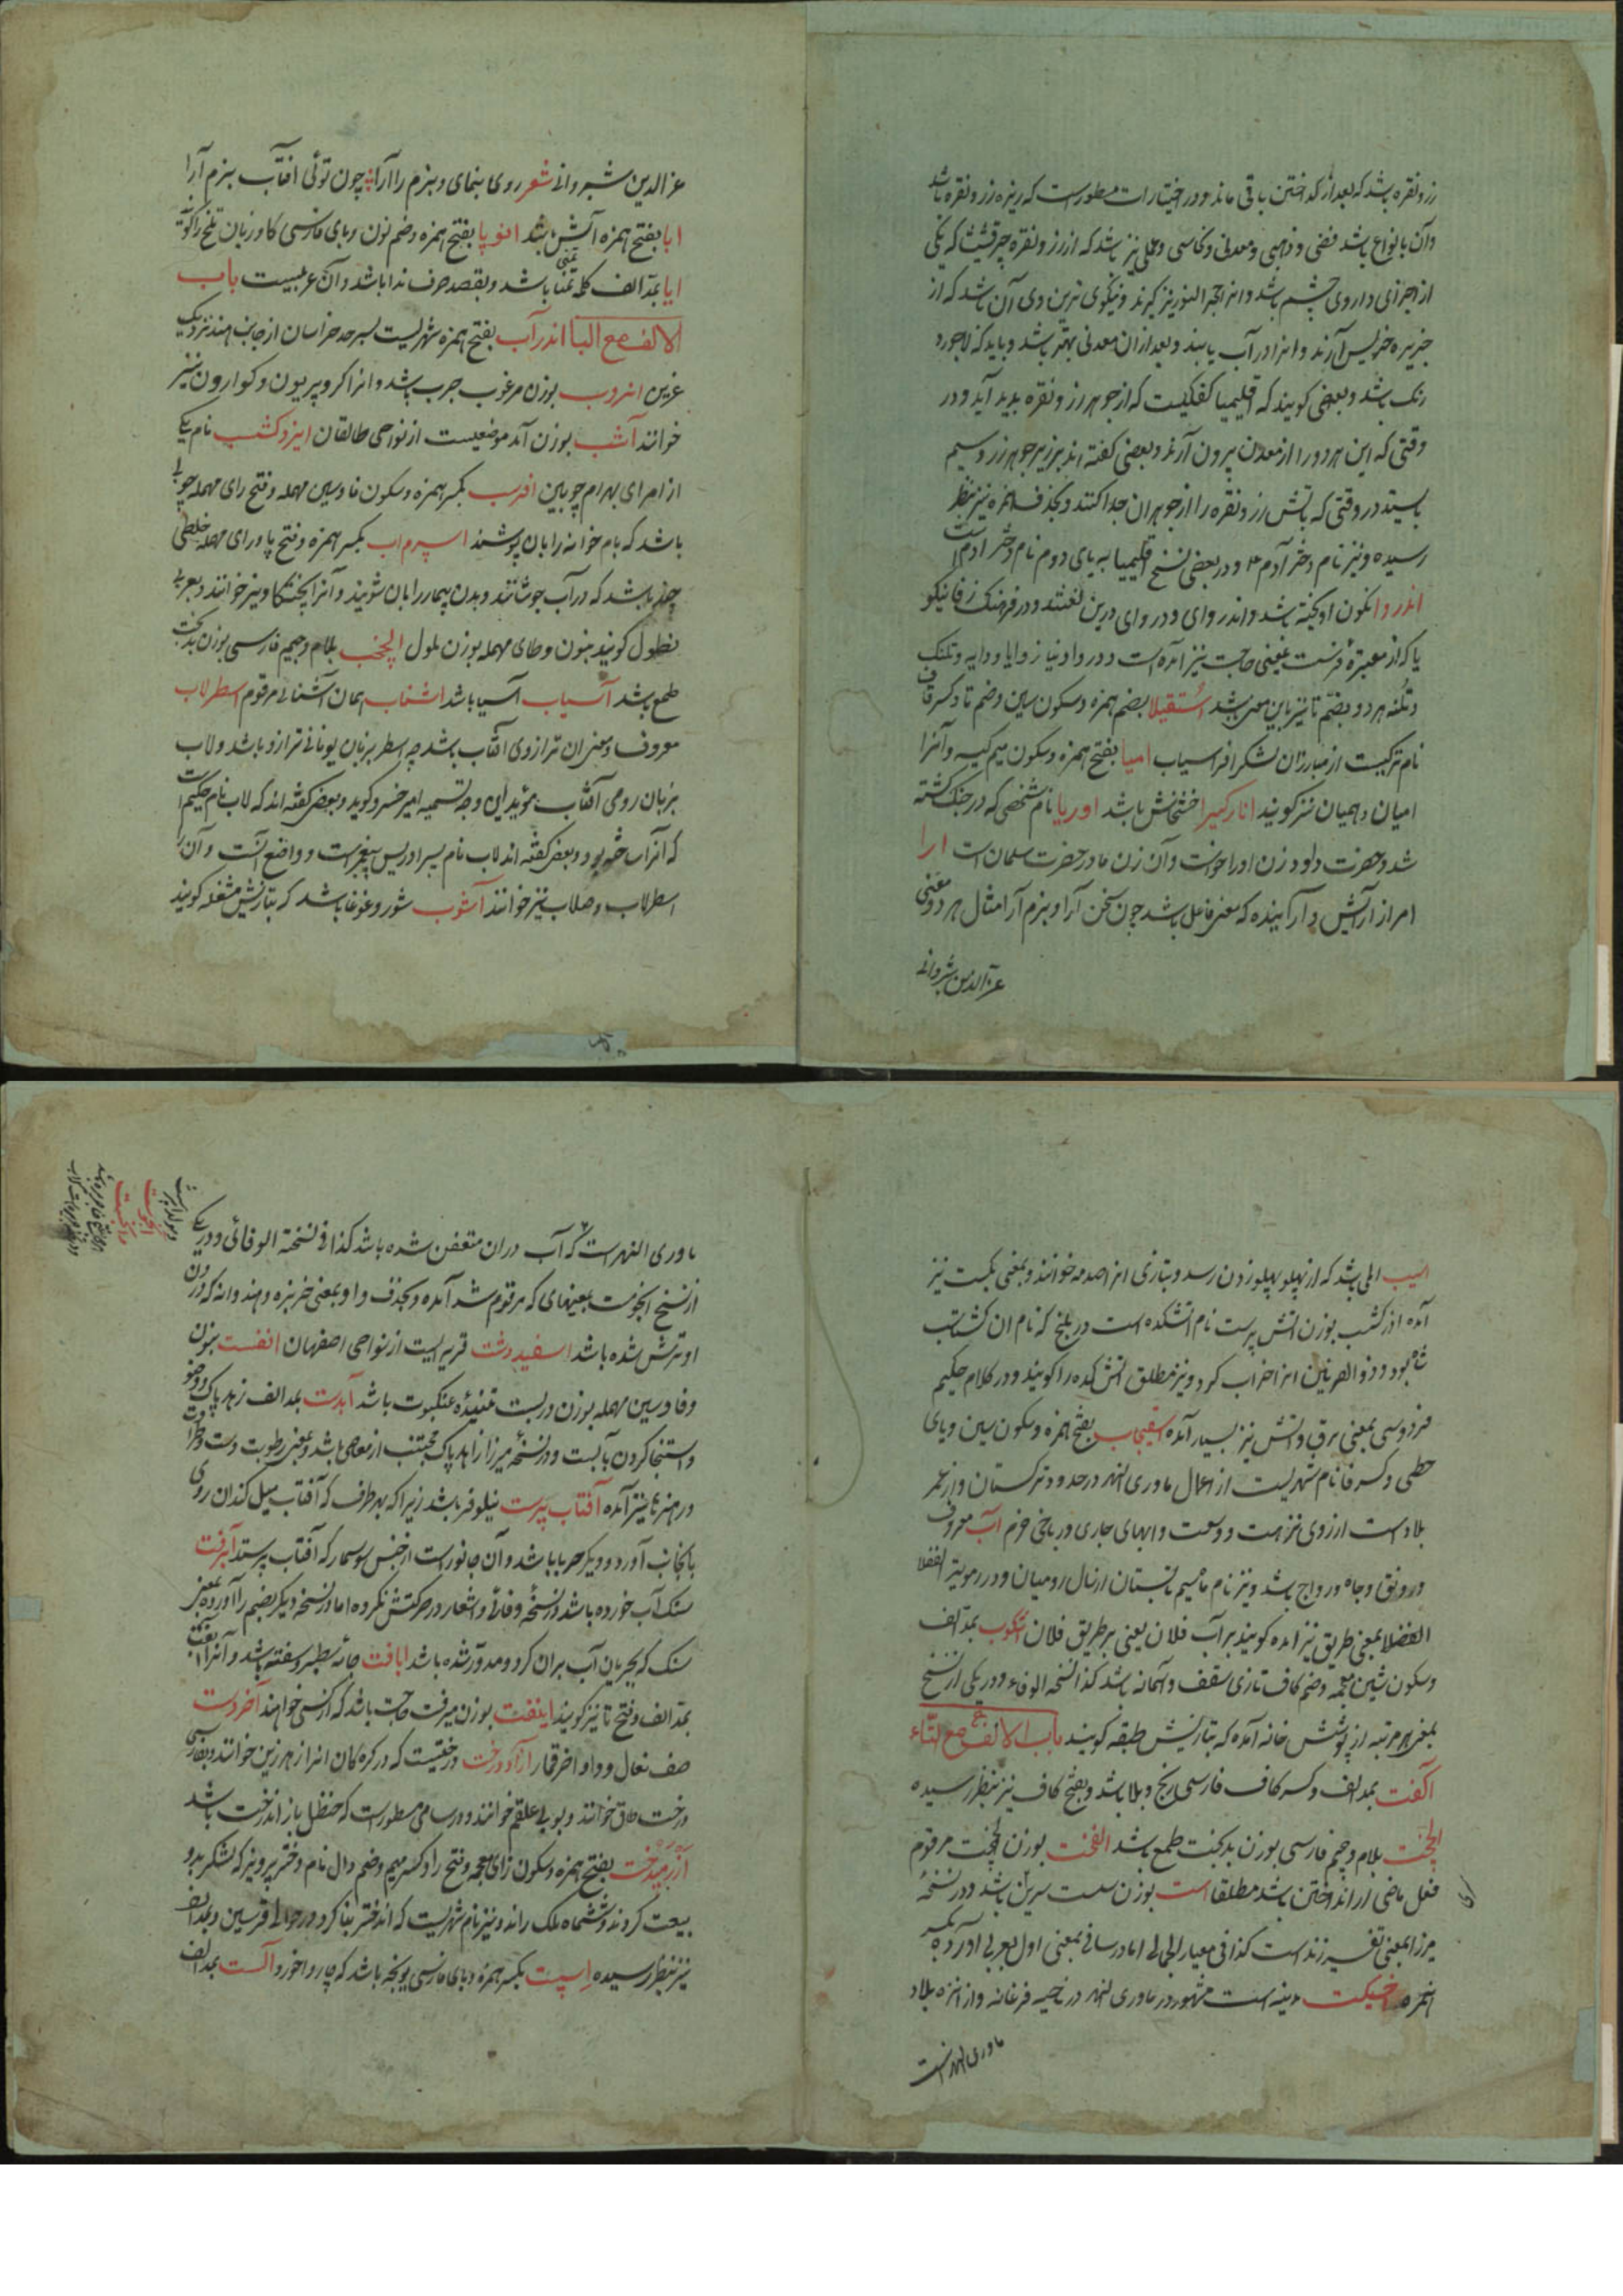 زر و نقره باشد که بعد از گداختن باقی ماند و در اختیارات مسطورست که ریزه زر و نقره باشد
وآن بانواع باشد فضی و ذهبی و معدنی و نحاسی و عملی نیز باشد که از زر و نقره
از اجزای داروی چشم باشد و از حجر النور نیز گیرند و نیکوی ترین وی آن باشد که از
جزیره آرند و انرا در آب یابند و بعد از ان معدنی بهتر باشد و باید که لاجورد
رنک باشد و بعضی کویند که اقلیمیا کفکیست که از جوهر زر و نقره پدید آید و در
وقتی که این هر دو را از معدن بیرون آرند و بعضی کفته اند جوهر زر و سیم
در وقتی که باتش زر و نقره را از جوهر ان جدا کنند و بحذف همزه نیز بنظر
رسیده و نیز نام دختر آدم و در بعضی نسخ اقلیمیا به یای دوم نام دختر ادم است
اندروا نکون اویخته باشد و اندروای و دروای درین لغتند و در فرهنک زفانیکو
یا که از معتبره است بمعنی حاجت نیز امده است
بضم تا نیز باین معنی باشد استقیلا بضم همزه و سکون سین و ضم تا و کسر قاف
نام ترکیست از مبارزان لشکر افراسیاب امیا بفتح همزه و سکون میم کیسه و آنرا
امیان و همیان نیز کویند انارکیرا خشخاش باشد اوریا نام شخصی که در جنک کشته
شد و حضرت داود زن او را خواست و آن زن مادر حضرت سلیمان است ارا
امر از آرایش و آراینده که معنی فاعل باشد چون سخن آرا و بزم آرا مثال هر دو معنی
عز الدین شروانی
عز الدین شروانی شعر روی بنمای و بزم را آرا چون توئی افتاب بزم آرا
ابا بفتح همزه آش باشد انوپا بفتح همزه و ضم نون و بای فارسی کاو زبان تلخ را کویند
ایا بمد الف کلمه تمنا باشد و بقصر حرف ندا باشد و آن عربیست باب
الالف مع البا اندرآب بفتح همزه شهریست بسرحد خراسان از جانب هند نزدیک
غزنین اروب بوزن مرغوب جرب باشد و انرا کر و پریون و کوارون نیز
خوانند آشب بوزن آمد موضعیست از نواحی طالقان ایزدکشسب نام یکی
از امرای بهرام چوبین افرسب بکسر همزه و سکون فا و سین مهمله و فتح رای مهمله چوبی
باشد که بام خانه را بان پوشند اسپرم اب بکسر همزه و فتح پا و رای مهمله خلطی
چند باشد که در آب جوشانند و بدن بیمار را بان شویند و آنرا پختکاو نیز خوانند و بعربی
نطول کویند بنون و طای مهمله بوزن ملول الچخب بلام و جیم فارسی بوزن بدبخت
طمع باشد آسیاب آسیا باشد اشناب همان آشنای مرقوم اسطرلاب
معروف و معنی ان ترازوی افتاب باشد چه اسطر بزبان یونانی ترازو باشد و لاب
بزبان رومی آفتاب مؤید این وجه تسمیه امیر خسرو کوید و بعضی کفته اند که لاب نام حکیم است
که آنرا ساخته بود و بعضی کفته اند لاب نام پسر ادریس پیغمبر است و واضع آنست و آن را
اسطرلاب و صلاب نیز خوانند آشوب شور و غوغا باشد که بتازیش مشغله کویند
اسیب المی باشد که از پهلو بپهلو زدن رسد و بتازی انرا صدمه خوانند و بمعنی نکبت نیز
آمده اذرکشب بوزن اتش پرست نام اتشکده است در بلخ که نام ان کشتاسب
شاه بود و ذوالقرنین انرا خراب کرد و نیز مطلق اتش کده را کویند و در کلام حکیم
فردوسی بمعنی برق و اتش نیز بسیار آمده اسفیجاب بفتح همزه و سکون سین و یای
حطی و کسر فا نام شهریست از اعمال ماوری النهر در حدود ترکستان و از نمر
بلاد است از روی نزهت و وسعت و ابهای جاری و ریاض خرم آب معروف
و رونق و جاه و رواج باشد و نیز نام ماه سیم تابستان از سال رومیان و در مویّد الفضلا
الفضلا بمعنی طریق نیز امده کویند بر آب فلان یعنی بر طریق فلان اشکوب بمد الف
و سکون شین معجمه و ضم کاف تازی سقف و آسمانه باشد کذا نسخه الوفاء و در یکی از نسخ
بمعنی هر مرتبه از پوشش خانه آمده که بتازیش طبقه کویند باب الالف مع التاء
آکفت بمد الف و کسر کاف فارسی رنج و بلا باشد و بفتح کاف نیز بنظر رسیده
الچخت بلام و جیم فارسی بوزن بدبخت طمع باشد الفخت بوزن مرقوم
فعل ماضی از اندوختن باشد مطلقا است بوزن سست سرین باشد و در نسخه
میرزا بمعنی تفسیر زند است کذا فی معیار الجمالی اما در سامی بمعنی اول بعربی آورده بکسر
همزه اخسیکت مدینه است مشهور در ماوری النهر در ناحیه فرغانه و از انزه بلاد
ماوری النهر است
ماوری النهر است که آب دران متعفن شده باشد کذا فی نسخة الوفائی و در یکی
از نسخ انجوست بمعنیهای که مرقوم شد آمده و بحذف واو بمعنی خربزه و هندوانه که درون
او ترش شده باشد اسفیدشت قریه ایست از نواحی اصفهان انفست بنون
و فا و سین مهمله بوزن دربست تنیده عنکبوت باشد آبدست بمد الف زاهد پاک و وضو
و استنجا کردن بآبست و در نسخه میرزا زاهد پاک مجتنب از معاصی باشد و بمعنی رطوبت دست و طراوت
و هنر نیز آمده آفتاب پرست نیلوفر باشد زیرا که بهر طرف که آفتاب میل کند ان روی
بانجانب آورد و دیکر حربا باشد و آن جانوریست از جنس سوسمار که آفتاب پرستد آبرفت
سنک آب خورده باشد در نسخه وفائی و اشعار در حرکتش نکرده اما در نسخه دیکر بضم را آورده بمعنی
سنک که بجریان آب بران کرد و مدور شده باشد ابافت جامه سطبر و سفته باشد و آنرا آبفت
بمد الف و فتح تا نیز کویند اینفت بوزن میرفت حاجت باشد که از کسی خواهند آخردست
صف نعال و داو اخر قمار آزاددرخت درختیست که در کره کان انرا زهر زمین خوانند و بفارسی
درخت طاق خوانند و بعربی علقم خوانند و در سامی مسطورست که حنظل بار اندرخت باشد
آزرمیدخت بفتح همزه و سکون زای معجمه و فتح را و کسر میم و ضم دال نام دختر پرویز که لشکر بدو
بیعت کردند و ششماه ملک راند و نیز نام شهریست که اندختر بنا کرد در حوالی قرمسین و بمد الف
نیز بنظر رسیده اسپست بکسر همزه و بای فارسی یونجه باشد که چاروا خورد آلست بمد الف